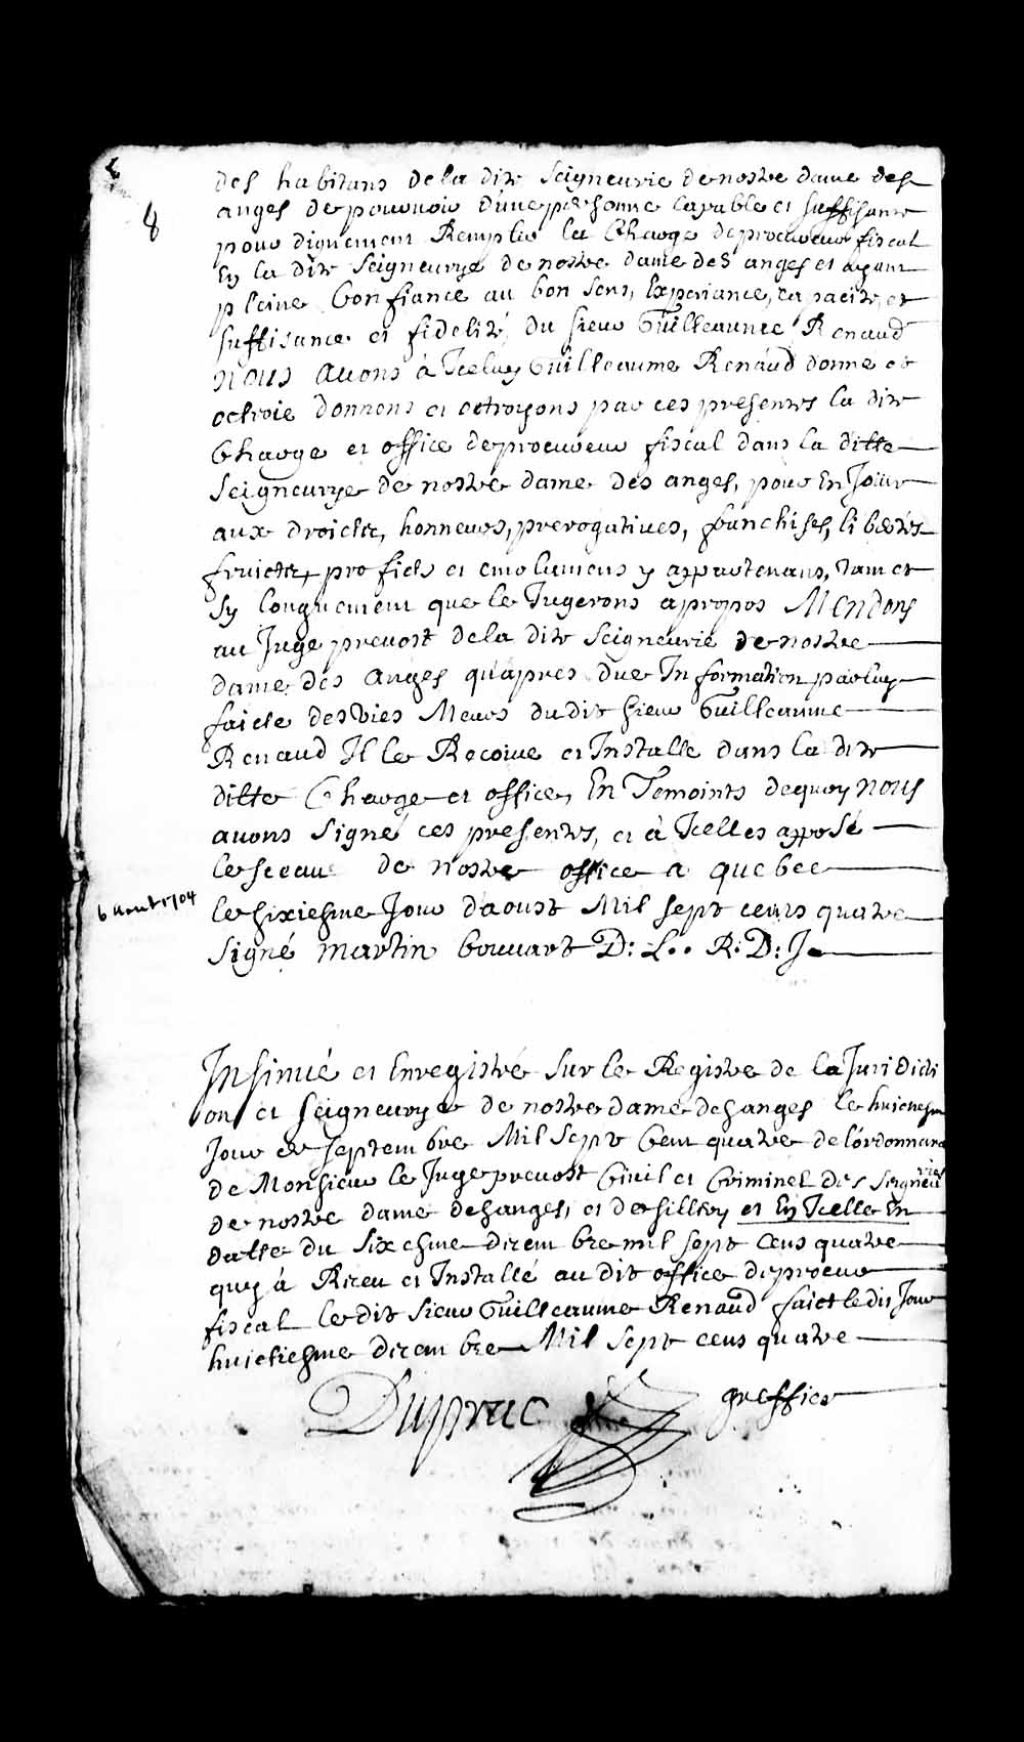 8
des habitans de la dite Seigneurie de nostre dame des
anges de pouruoir d'une personne capable et suffisante
pour dignement Remplir la Charge de procureur fiscal
En la dite Seigneurye de nostre dame des anges et ayant
pleine Confiance au bon sens, Experiance, capacité, et
suffisance et fidelité, du sieur Guilleaume Renaud
nous auons à Iceluy Guilleaume Renaud donné et
octroié donnons et octroyons par ces presentes la dite
Charge et office de procureur fiscal dans la ditte
Seigneurye de nostre dame des anges, pour En Joüir
aux droictz, honneurs, prerogatiues, franchises, libertés
fruictz, profficts et emolumens y appartenans, tant et
sy longuement que le Jugerons apropos Mendons
au Juge preuost de la dite Seigneurie de nostre
dame des Anges qu'apres due Information par luy
faicte des vies Meurs du dit sieur Guilleaume
Renaud Il le Recoiue et Installe dans la dite
ditte Charge et office, En Temoints de quoy nous
auons Signé ces presentes, et à Icelles apposé
le sceau de nostre office a quebec
6 aout 1704
le sixiesme Jour d'aoust Mil sept cens quatre
Signé martin bouuart D: L.. R: D: J.
Insinué et Enregistré Sur le Registre de la Juridicti
on et Seigneurye de nostre dame des anges le huictiesme
Jour de Septembre Mil Sept Cent quatre de l'ordonnance
de Monsieur le Juge preuost Ciuil et Criminel des Seigneuries
de nostre dame des anges, et de sillery et En Icelle En
datte du sixiesme decembre mil sept cens quatre
quy à Receu et Installé au dit office de procur
fiscal le dit Sieur Guilleaume Renaud faict le dit Jour
huictiesme decembre Mil Sept cens quatre
Duprac greffier